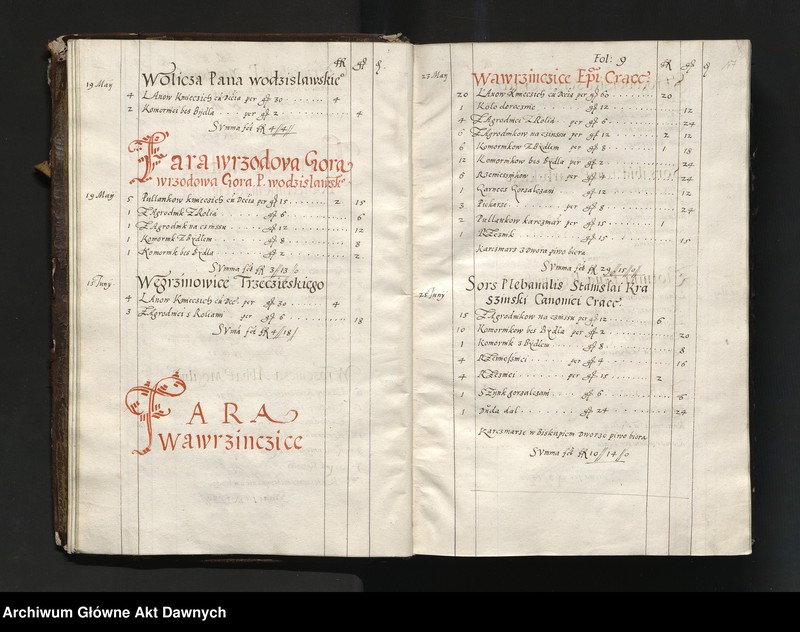 fR gſ ꝗ
19 Maÿ Wolicza Pana wodzisławskie°
4 Łanow Kmieczich cũ Decia per gſ 30 4
2 Komornici bes Bÿdła per gſ 2 4
SVmma fcit fR 4// 4//
Fara wrzodova Gora
wrzodowa Gora. P. wodzisławsk°
19 Maÿ 5 Pułłankow kmieczich cũ Decia per gſ 15 2 15
1 ZAgrodnik Z Rolią gſ 6 6
1 ZAgrodnik na czinssu gſ 12 12
1 Komornik Z bÿdłem gſ 8 8
1 Komornik bes Bÿdła gſ 2 2
SVmma fcit fR 3// 13 //0
15 Junÿ Węgrzinowice Trzeczieskiego
4 ŁAnow Kmieczich cũ Dec° per gſ 30 4
3 ZAgrodnici s Rolami per gſ 6 18
SVma fcit fR 4// 18//
FARA
Wawrzinczice
Fol: 9
fR gſ ꝗ
23 Maÿ Wawrzinczice Epi Cracc°
20 Łanow Kmieczich cũ Decia per gſ 60 20
1 Koło doroczne gſ 12 12
4 ZAgrodnici Z Rolią per gſ 6 24
6 ZAgrodnikow na czinssu per gſ 12 2 12
6 Komornikow Z bÿdłem per gſ 8 1 18
12 Komornikow bes Bÿdła per gſ 2 24
8 Rzemiesnikow per gſ 4 24
1 Garnecz Gorzałczani gſ 12 12
3 Piekarze per gſ 8 24
2 Pułłankow karczmar per gſ 15 1
1 RZesnik gſ 15 15
Karczmarz s Dwora piwo biora
SVmma fcit fR 29 // 15 //0//
25 Junÿ Sors Plebanalis Stanislai Kra
szinski Canonici Cracc°
15 ZAgrodnikow na czinssu per gſ 12 6
10 Komornikow bes Bÿdła per gſ 2 20
1 Komornik z Bÿdłem gſ 8 8
4 RZemesnici per gſ 4 16
4 RZesnici per gſ 15 2
1 SZÿnk gorzałczani gſ 6 6
1 dał gſ 24 24
Karczmarze w Biskupiem Dworze piwo biora
SVmma fcit fR 10 // 14 //0
Archiwum Główne Akt Dawnych